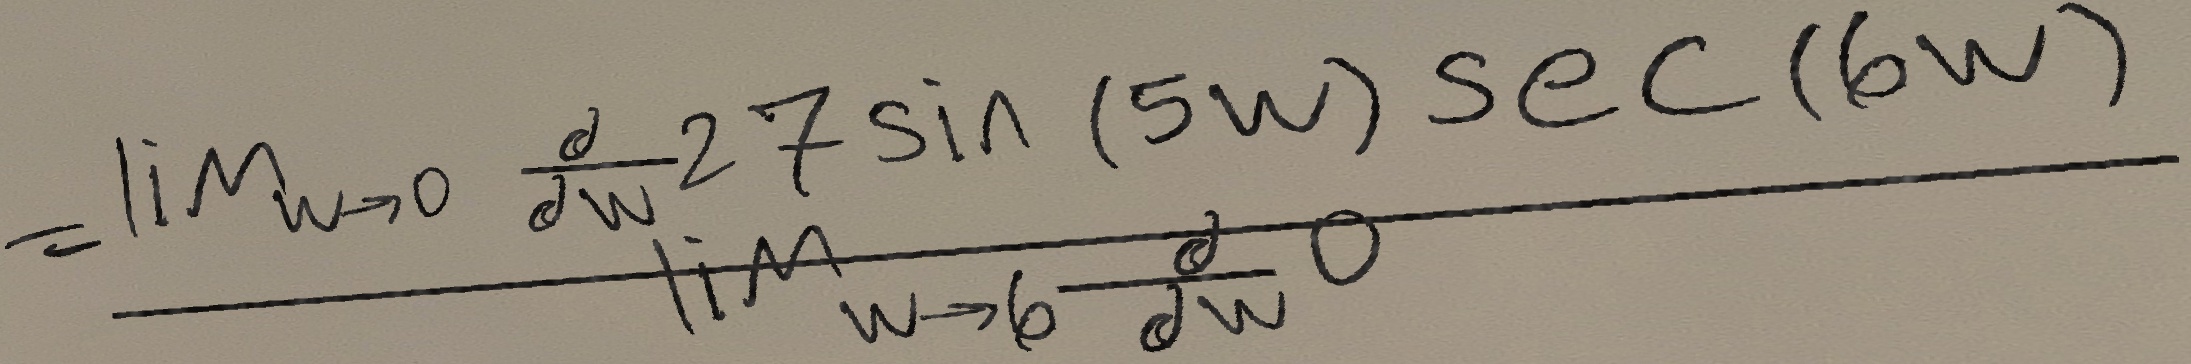 = lim_{w→0} \frac{d}{dw} 27 sin (5w) sec (6w)
lim_{w→6} \frac{d}{dw} 0